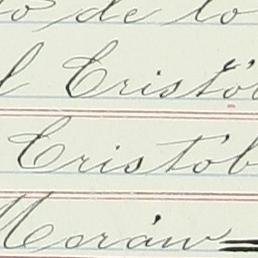 o de lo
l Cristób
Cristób
Morán